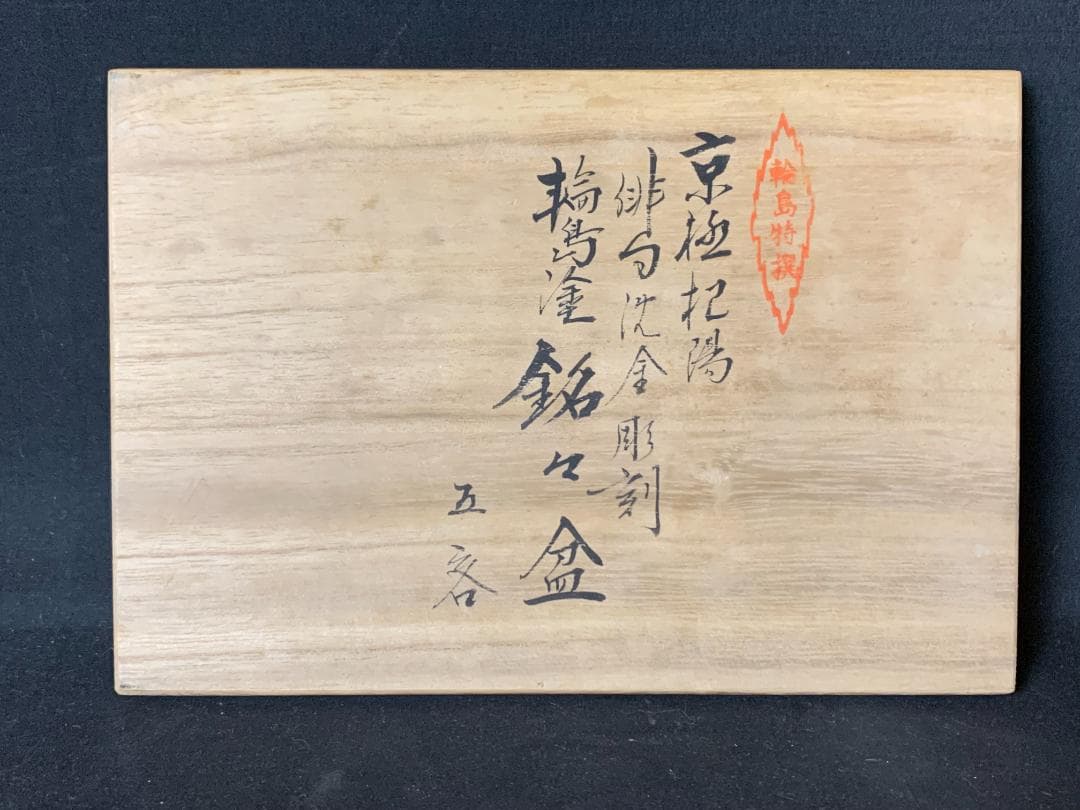 輪島特撰
京極杞陽
俳句沈金彫刻
輪島塗銘々盆
五客